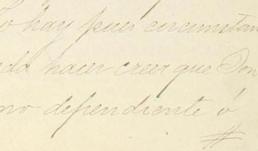 hay pues circunstan
da hacer creer que Don
no dependiente ó